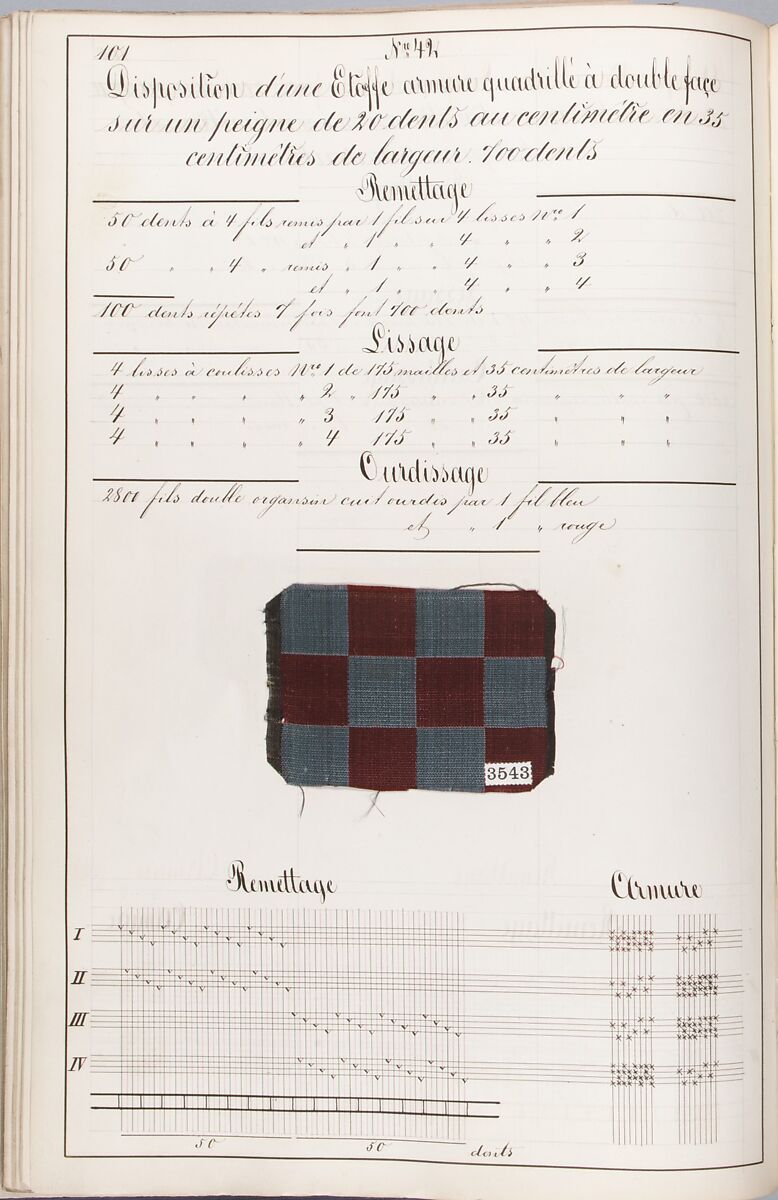 101
N° 42
Disposition d'une Etoffe armure quadrillé à double façe
sur un peigne de 20 dents au centimétre en 35
centimétres de largeur. 700 dents
Remettage
50 dents à 4 fils remis par 1 fil sur 4 lisses Nro 1
et " 1 " " 4 " " 2
50 " " 4 " remis " 1 " " 4 " " 3
et " 1 " " 4 " " 4
100 dents répétés 7 fois font 700 dents
Lissage
4 lisses à coulisses Nro 1 de 175 mailles et 35 centimétres de largeur
4 " " " " 2 " 175 " " 35 " " "
4 " " " " 3 175 " " 35 " " "
4 " " " " 4 175 " " 35 " " "
Ourdissage
2800 fils double organsin cuit ourdis par 1 fil bleu
et " 1 " rouge
3543
Remettage
Armure
I
II
III
IV
50 50 dents